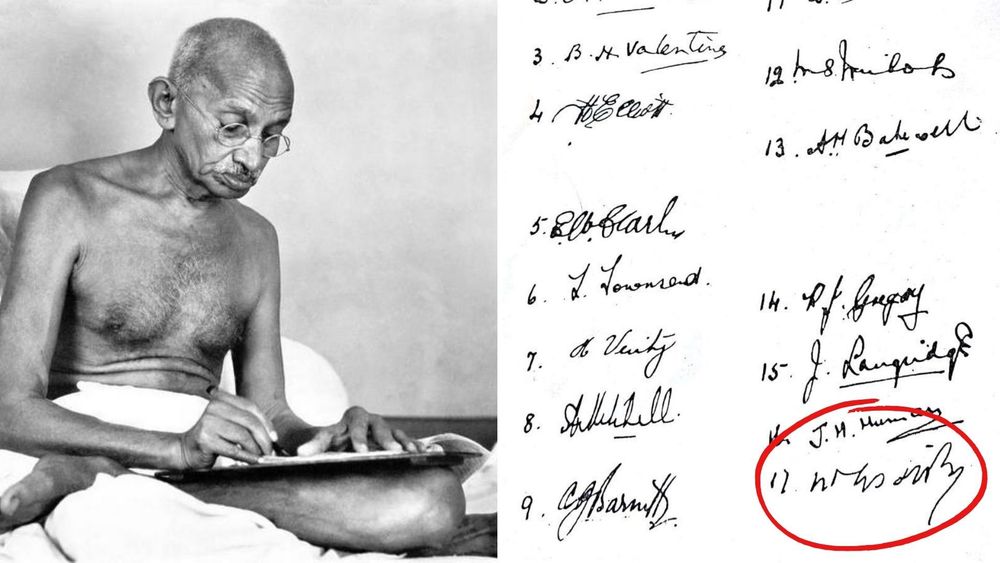 3. B. H. Valentine
4 H Elliott.
5. E.W. Clark
6. L. Townsend.
7. H Verity
8. A Mitchell.
9. C J Barnett
12
13. A H Bakewell
14. R. J. Gregory
15. J. Langridge
16. J. H. Human
17